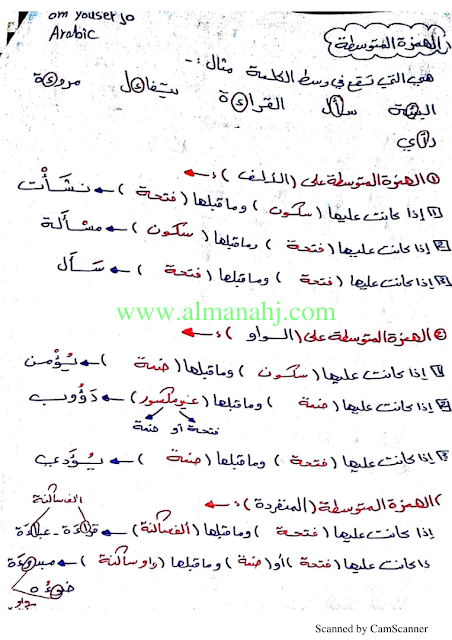 om yousef jo
Arabic
الهمزة المتوسطة
هي التي تقع في وسط الكلمة مثال :-
البيئة سأل القراءة يتفاءل مروءة
رأي
① الهمزة المتوسطة على (الألف) :
1 إذا كانت عليها (سكون) وما قبلها (فتحة) ← نشأت
2 إذا كانت عليها (فتحة) وما قبلها (سكون) ← مسْألة
3 إذا كانت عليها (فتحة) وما قبلها (فتحة) ← سَأَل
www.almanahj.com
② الهمزة المتوسطة على (الواو) :
1 إذا كانت عليها (سكون) وما قبلها (ضمة) ← يُؤْمن
2 إذا كانت عليها (ضمة) وما قبلها (غير مكسور) ← دَؤُوب
فتحة أو ضمة
3 إذا كانت عليها (فتحة) وما قبلها (ضمة) ← يُؤَدي
ألف ساكنة
الهمزة المتوسطة (المنفردة) :
إذا كانت عليها (فتحة) وما قبلها (ألف ساكنة) ← قراءة - عباءة
إذا كانت عليها (فتحة) أو (ضمة) وما قبلها (واو ساكنة) ←
ضوءُه
Scanned by CamScanner